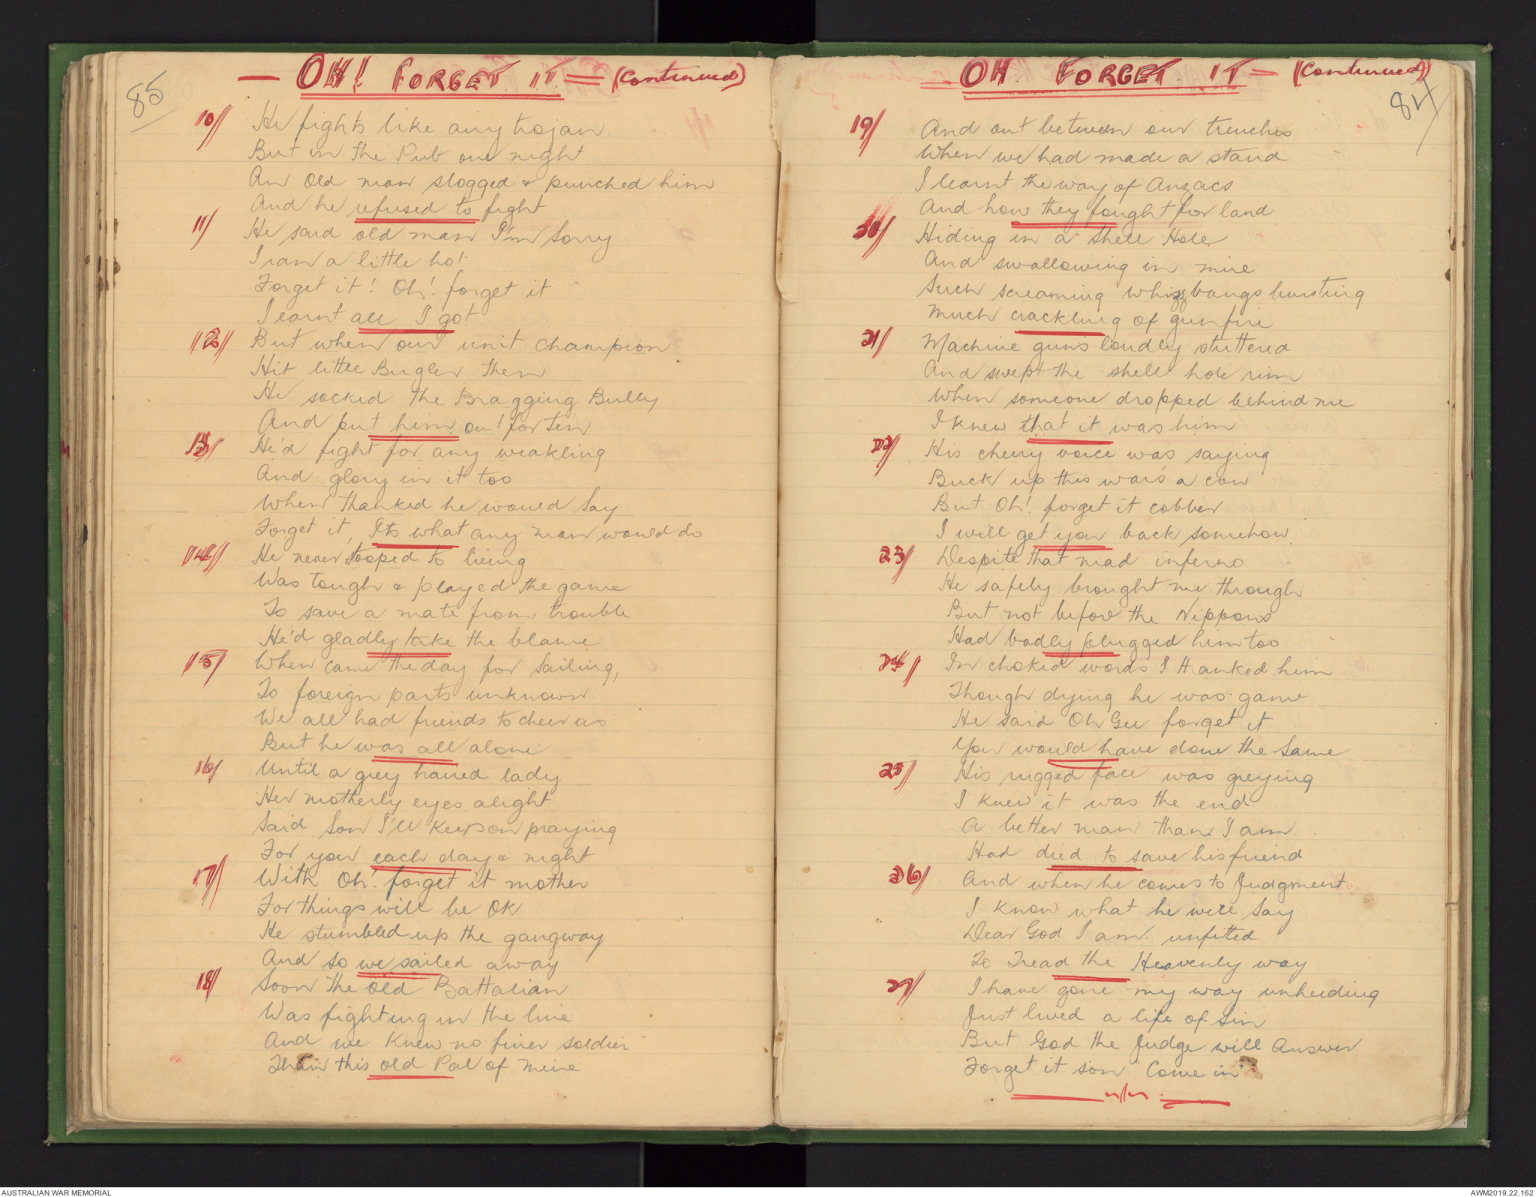 85
OH! FORGET IT = (Continued)
10// He fights like any trojan
But in the Pub one night
An old man slogged & punched him
And he refused to fight
11/ He said old man I'm sorry
I ran a little hot
Forget it! Oh! forget it
I learnt all I got
12// But when our unit champion
Hit little Bugler then
He socked the Bragging Bully
And put him out for ten
13// He'd fight for any weakling
And glory in it too
When thanked he would say
Forget it, Its what any man would do
14// He never stooped to lieing
Was tough & played the game
To save a mate from trouble
He'd gladly take the blame
15/ When came the day for sailing,
To foreign parts unknown
We all had friends to cheer us
But he was all alone
16/ Until a grey haired lady
Her motherly eyes alight
Said Son I'll keep on praying
For you each day & night
17/ With Oh! forget it mother
For things will be OK
He stumbled up the gangway
And so we sailed away
18/ Soon the old Battalian
Was fighting in the line
And we knew no finer soldier
Than this old Pal of mine
OH FORGET IT = (Continued)
84
19/ And out between our trenches
When we had made a stand
I learnt the way of Anzacs
And how they fought for land
20/ Hiding in a shell Hole
And swallowing in mire
Such screaming whizz bangs bursting
Much crackling of gunfire
21/ Machine guns loudly stuttered
And swept the shell hole rim
When someone dropped behind me
I knew that it was him
22/ His cheery voice was saying
Buck up this war's a cow
But Oh! forget it cobber
I will get you back somehow
23// Despite that mad inferno
He safely brought me through
But not before the Nippons
Had badly plugged him too
24// In choked words I thanked him
Though dying he was game
He said Oh Gee forget it
You would have done the same
25// His rugged face was greying
I knew it was the end
A better man than I am
Had died to save his friend
26/ And when he comes to Judgment
I know what he will say
Dear God I am unfitted
To Tread the Heavenly way
27/ I have gone my way unheeding
Just lived a life of sin
But God the Judge will answer
Forget it son "Come in"
AUSTRALIAN WAR MEMORIAL
AWM2019.22.162